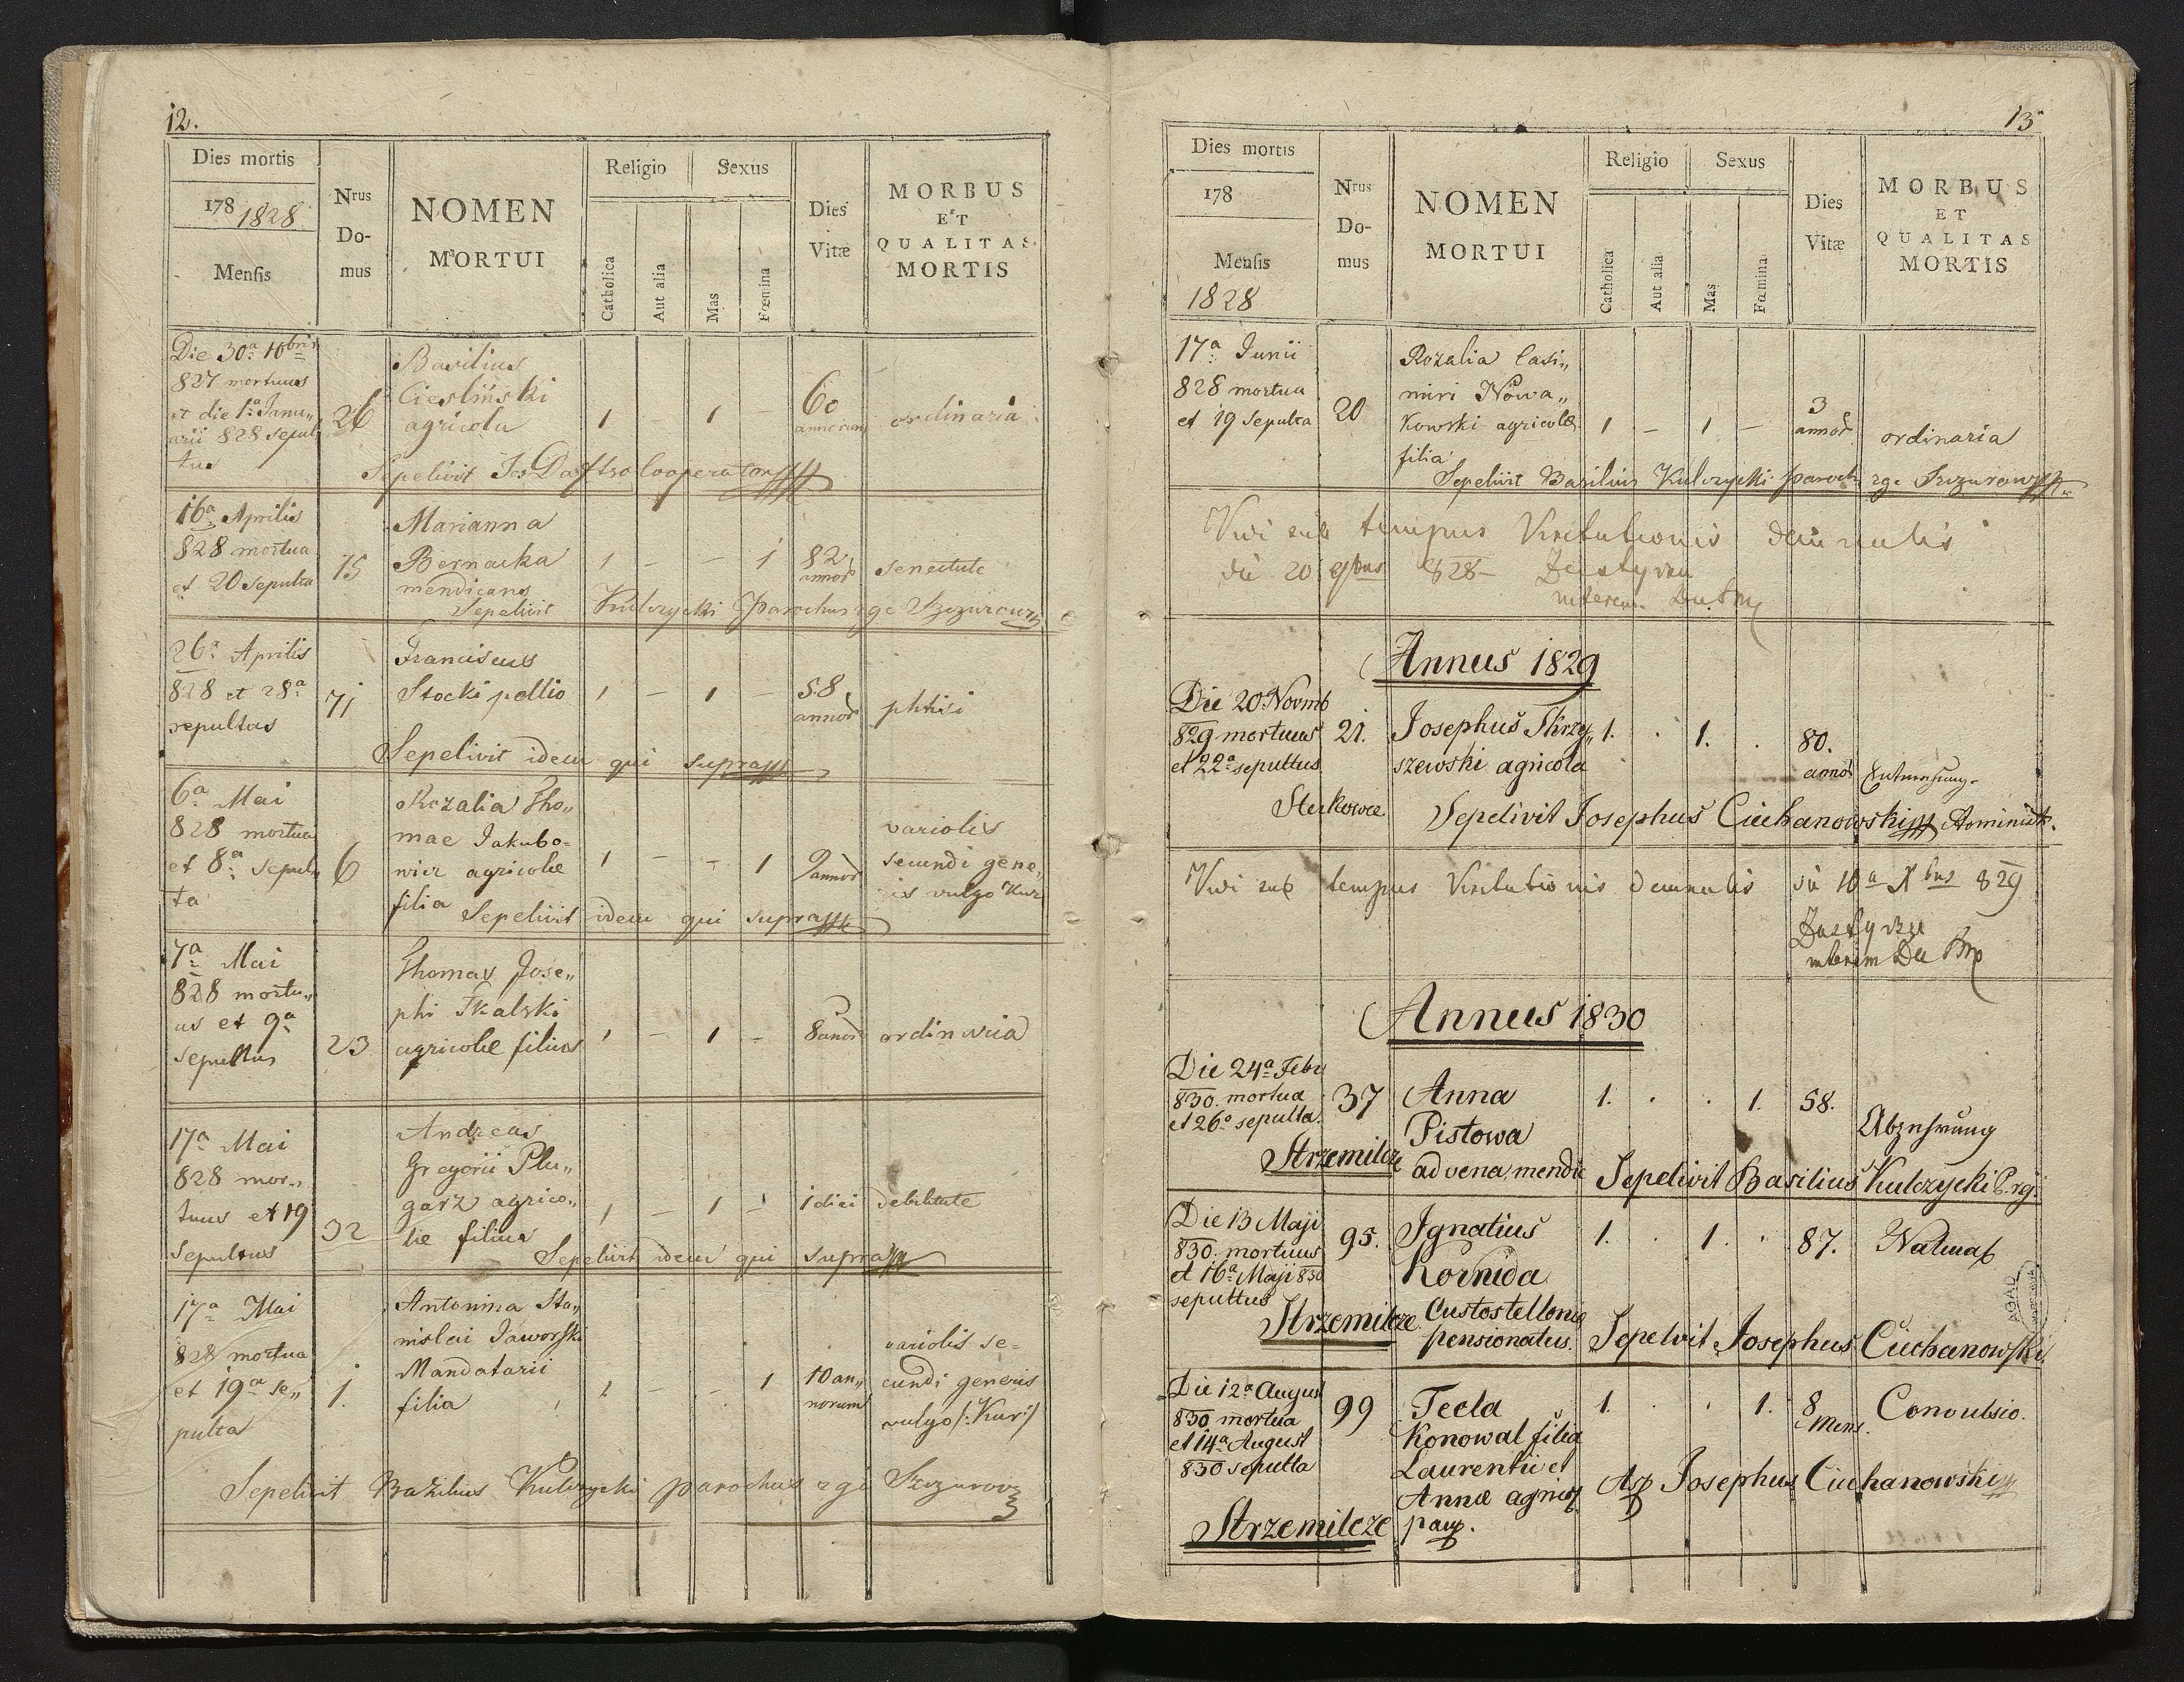 12.
Dies mortis
178 1828
Mensis
Nrus Do- mus
NOMEN
MORTUI
Religio
Catholica
Aut alia
Sexus
Mas
Fœmina
Dies Vitæ
MORBUS
ET
QUALITAS
MORTIS
Die 30a 10bris
827 mortuus
et die 1a Janu„
arii 828 sepul
tus
26
Basilius
Ciesliński
agricola
1 1 - 60 annorum ordinaria
Sepelivit Cooperator
16a Aprilis
828 mortua
et 20 sepulta
15
Marianna
Bernacka
mendicans
1 - - 1 82 annor senectute
Sepelivit Kulczycki Parochus rgc Szczurow
26a Aprilis
828 et 28a
sepultus
71
Franciscus
Stocki pellio
1 - 1 - 58 annor phtisi
Sepelivit idem qui supra
6a Mai
828 mortua
et 8a sepul„
ta
6
Rozalia Tho„
mae Jakubo-
wicz agricolae
filia
1 - - 1 9 annor
variolis
secundi gene„
ris vulgo Kur
Sepelivit idem qui supra
7a Mai
828 mortu„
us et 9a
sepultus
23
Thomas Jose„
phi Skalski
agricolae filius
1 - 1 - 8 annor ordinaria
17a Mai
828 mor„
tuus et 19
Sepultus
32
Andreas
Gregorii Plu„
garz agrico„
lae filius
1 - 1 - 1 diei debilitate
Sepelivit idem qui supra
17a Mai
828 mortua
et 19a se„
pulta
1.
Antonina Sta„
nislai Jaworski
Mandatarii
filia
1 - - 1 10 an„
norum
variolis se-
cundi generis
vulgo /:Kur:/
Sepelivit Bazilius Kulczycki parochus rgc Szczurow
13
Dies mortis
178
Mensis
1828
Nrus Do- mus
NOMEN
MORTUI
Religio
Catholica
Aut alia
Sexus
Mas
Fœmina
Dies Vitæ
MORBUS
ET
QUALITAS
MORTIS
17a Junii
828 mortua
et 19 sepulta
20
Rozalia Casi„
miri Nowa„
kowski agricolae
filia
1 - 1 - 3 annor ordinaria
Sepelivit Basilius Kulczycki paroch rgc Szczurow
Vidi sub tempus Visitationis decanalis
die 20 9bris 828
Annus 1829
Die 20 Novmb
829 mortuus
et 22a sepultus
21.
Josephus Skrzy„
szewski agricola
1. . 1. . 80.
annor
Sterkowce Sepelivit Josephus Ciechanowski Administr.
Vidi sub tempus Visitationis decanalis die 10a Xbris 829
Annus 1830
Die 24a Febr
830. mortua
et 26a sepulta.
37
Anna
Pistowa
advena, mendic
1. . . 1. 58.
Abzehrung
Strzemilcze
Sepelivit Basilius Kulczycki P. rg.
Die 13 Maji
830. mortuus
et 16a Maji 830
sepultus
95.
Ignatius
Kornida
Custos tellonia
pensionatus.
1. . 1. . 87.
Strzemilcze
Sepelvit Josephus Ciechanowski
AGAD
Die 12a August
830 mortua
et 14a August
830 sepulta
99
Tecla
Konowal filia
Laurentii et
Annæ agric
paup.
1. . . 1. 8 Mens. Convulsio.
Josephus Ciechanowski
Strzemilcze